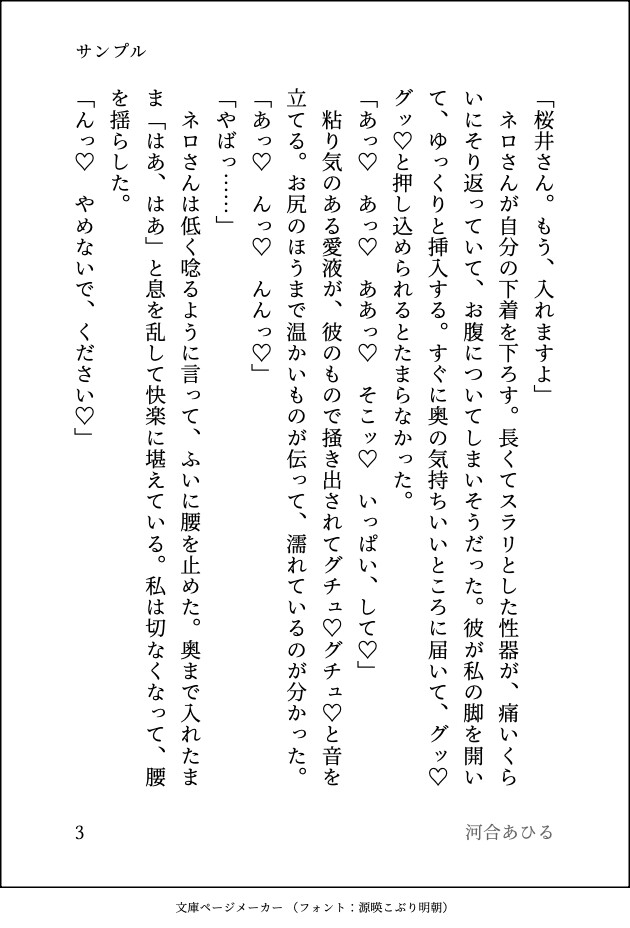 サンプル
「桜井さん。もう、入れますよ」
　ネロさんが自分の下着を下ろす。長くてスラリとした性器が、痛いくら
いにそり返っていて、お腹についてしまいそうだった。彼が私の脚を開い
て、ゆっくりと挿入する。すぐに奥の気持ちいいところに届いて、グッ♡
グッ♡と押し込められるとたまらなかった。
「あっ♡　あっ♡　ああっ♡　そこッ♡　いっぱい、して♡」
　粘り気のある愛液が、彼のもので掻き出されてグチュ♡グチュ♡と音を
立てる。お尻のほうまで温かいものが伝って、濡れているのが分かった。
「あっ♡　んっ♡　んんっ♡」
「やばっ……」
　ネロさんは低く唸るように言って、ふいに腰を止めた。奥まで入れたま
ま「はあ、はあ」と息を乱して快楽に堪えている。私は切なくなって、腰
を揺らした。
「んっ♡　やめないで、ください♡」
3
河合あひる
文庫ページメーカー（フォント：源暎こぶり明朝）